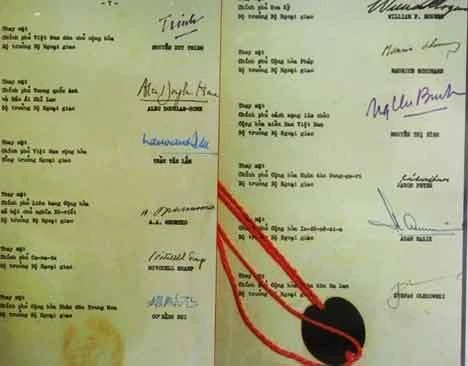 - 7 -
Thay mặt
Chính phủ Việt Nam dân chủ cộng hòa
Bộ trưởng Bộ Ngoại giao
NGUYỄN DUY TRINH
Thay mặt
Chính phủ Vương quốc Anh
và Bắc Ai Len
Bộ trưởng Bộ Ngoại giao
ALEC DOUGLAS-HOME
Thay mặt
Chính phủ Việt Nam cộng hòa
Tổng trưởng Ngoại giao
TRẦN VĂN LẮM
Thay mặt
Chính phủ Liên bang Cộng hòa
xã hội chủ nghĩa Xô-viết
Bộ trưởng Bộ Ngoại giao
A.A. GROMYKO
Thay mặt
Chính phủ Ca-na-đa
Bộ trưởng Bộ Ngoại giao
MITCHELL SHARP
Thay mặt
Chính phủ Cộng hòa Nhân dân Trung Hoa
Bộ trưởng Bộ Ngoại giao
CƠ BẰNG PHI
Chính phủ Hoa Kỳ
Bộ trưởng Bộ Ngoại giao
WILLIAM P. ROGERS
Thay mặt
Chính phủ Cộng hòa Pháp
Bộ trưởng Bộ Ngoại giao
MAURICE SCHUMANN
Thay mặt
Chính phủ cách mạng lâm thời
Cộng hòa miền Nam Việt Nam
Bộ trưởng Bộ Ngoại giao
NGUYỄN THỊ BÌNH
Thay mặt
Chính phủ Cộng hòa Nhân dân Hung-ga-ri
Bộ trưởng Bộ Ngoại giao
JANOS PETER
Thay mặt
Chính phủ Cộng hòa In-đô-nê-xi-a
Bộ trưởng Bộ Ngoại giao
ADAM MALIK
Thay mặt
Chính phủ Cộng hòa Nhân dân Ba Lan
Bộ trưởng Bộ Ngoại giao
STEFAN OLSZOWSKI